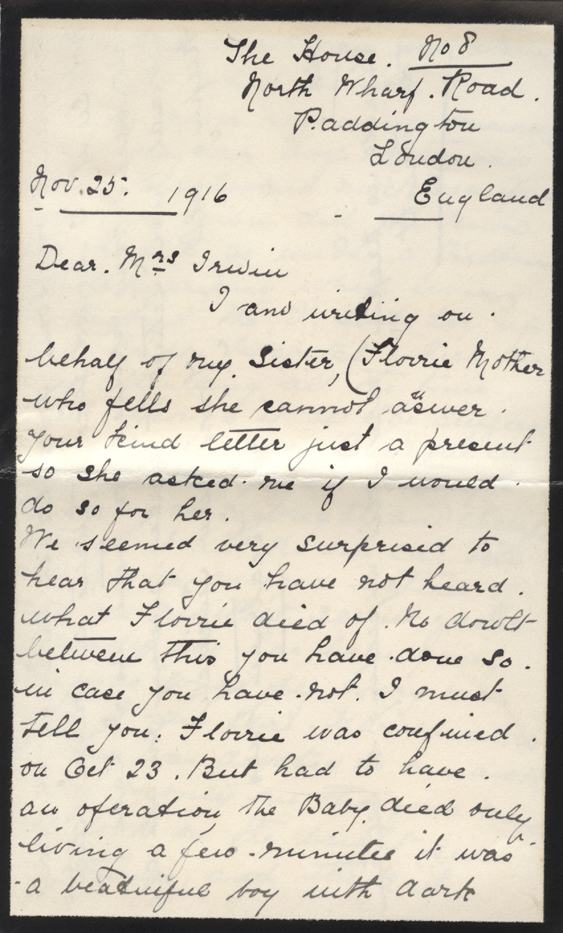 The House. No 8
North Wharf. Road.
Paddington
London.
England
Nov. 25. 1916
Dear. Mrs Irwin
I am writing on.
behalf of my Sister, (Florrie Mother
who fells she cannot aswer.
your kind letter just a present
so she asked. me if I would.
do so for her.
We seemed very surprised to
hear that you have not heard.
what Florrie died of. No dowlt
between this you have. done so.
in case you have. not. I must
tell you. Florrie was confined.
on Oct 23. But had to have.
an operation, the Baby died only
living a few. minutes it was
a beatuiful boy with dark